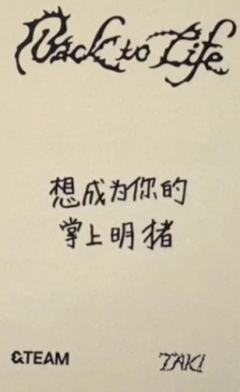 Back to Life
想成为你的
掌上明猪
&TEAM
TAKI